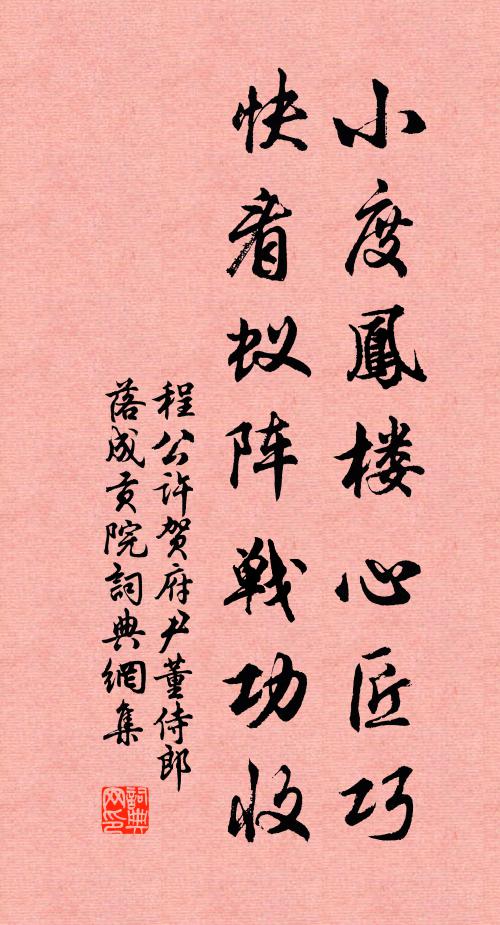 小度鳳楼心匠巧
快看蚁阵戦功收
程公许贺府尹董侍郎
落成贡院詞典網集
詞典
网印